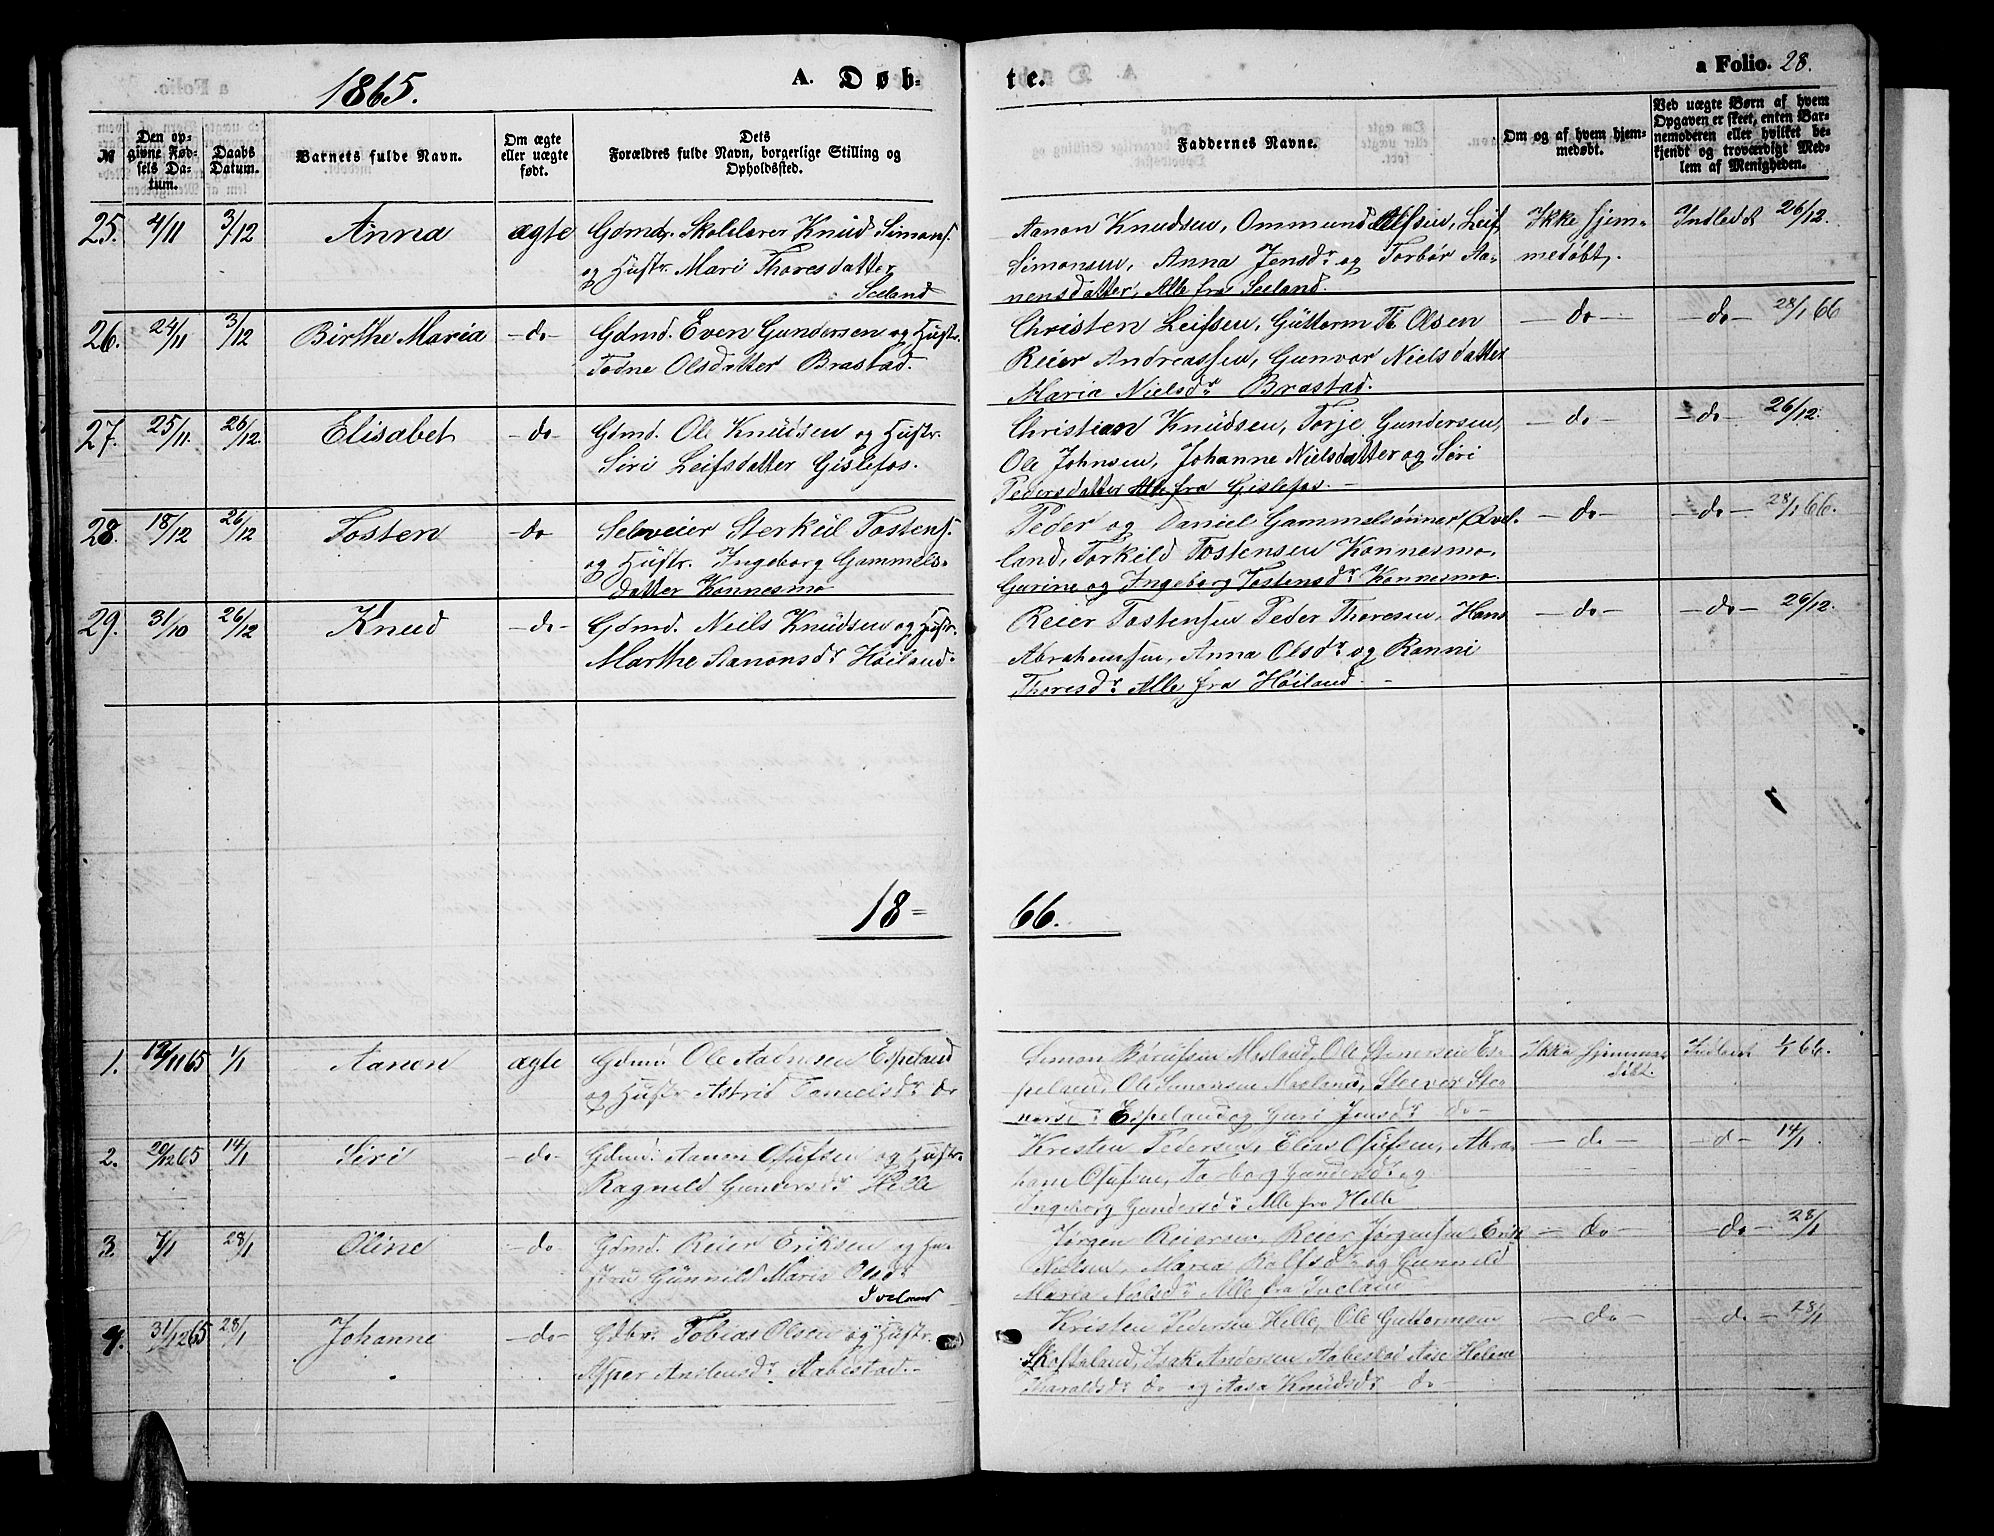 1865.
A. Døb-
te.
a Folio. 28.
№
Den op-
givne Fød-
sels Da-
tum.
Daabs
Datum.
Barnets fulde Navn.
Om ægte
eller uægte
født.
Dets
Forældres fulde Navn, borgerlige Stilling og
Opholdssted.
Faddernes Navne.
Om og af hvem hjem-
medøbt.
Ved uægte Børn af hvem
Opgaven er skeet, enten Bar-
nemoderen eller hvilket be-
kjendt og troværdigt Med-
lem af Menigheden.
25. 4/11 3/12 Anna ægte Gdmd. Skolelærer Knud Simons.
og Hustr. Mari Thoresdatter
Sceland
Aanon Knudsen, Ommund Alfsen, Leif
Simonsen, Anna Jensdr og Torbør Aa-
nensdatter, Alle fra Sceland.
Ikke hjem-
medøbt.
Indledet 26/12.
26. 24/11 3/12 Birthe Maria -do- Gdmd. Even Gundersen og Hustr.
Todne Olsdatter Brastad.
Christen Leifsen, Guttorm T. Olsen
Reier Andreassen, Gunvor Nielsdatter
Maria Nielsdr Brastad.
- do - - do - 28/1 66
27. 25/11. 26/12. Elisabet -do- Gdmd. Ole Knudsen og Hustr.
Siri Leifsdatter Gislefos.
Christian Knudsen, Torje Gundersen,
Ole Johnsen, Johanne Nielsdatter og Siri
Pedersdatter Alle fra Gislefos. -
- do - - do - 26/12.
28. 18/12 26/12 Tosten -do Selveier Sterkil Tostens.
og Hustr. Ingeborg Gammels-
datter Konnesmo
Peder og Daniel Gammelsønner Øvel-
land, Torkild Tostensen Konnesmo,
Gurine og Ingeborg Tostensdr Konnesmo.
- do - - do - 28/1 66.
29. 3/10 26/12 Knud -do- Gdmd. Niels Knudsen og Hustr.
Marthe Aanonsdr Høiland.
Reier Tostensen Peder Thoresen, Hans
Abrahamsen, Anna Olsdr og Ranni
Thoresdr Alle fra Høiland. -
- do - - do - 26/12.
18=
66.
1. 12/11 65 1/1 Aanon ægte Gdmd. Ole Espeland
og Hustr. Astrid do
Simon Møland, Ole Stenersen Es-
peland, Ole Simonsen Møeland,
Espeland og Guri Jensdr do -
Ikke hjemme-
døbt.
Indledt 1/1 66.
2. 20/12 65 14/1 Siri -do- Gdmd. Aanon Olufsen og Hustr.
Ragnild Gundersdr Helle
Kresten Pedersen, Elias Olufsen, Abra-
ham Olufsen, Torborg Gundersdr og
Ingeborg Gundersdr Alle fra Helle
- do - - d - 14/1
3. 7/1 28/1 Oline -do- Gdmd. Reier Eriksen og Hu-
stru Gunnild Maria Olsdr
Iveland
Jørgen Reiersen, Reier Jørgensen, Erik
Nielsen, Maria Rolfsdr og Gunnild
Maria Nielsdr Alle fra Iveland
- do - - do - 28/1
4. 31/12 65 28/1 Johanne -do- Gdbr. Tobias Olsen og Hustr.
Asper Aabestad. -
Kristen Pedersen Helle, Ole Guttormsen
Skofteland, Isak Andersen Aabestad Aase Helene
Tharaldsdr do og Aasa Knudsdr do -
- do - - do - 28/1